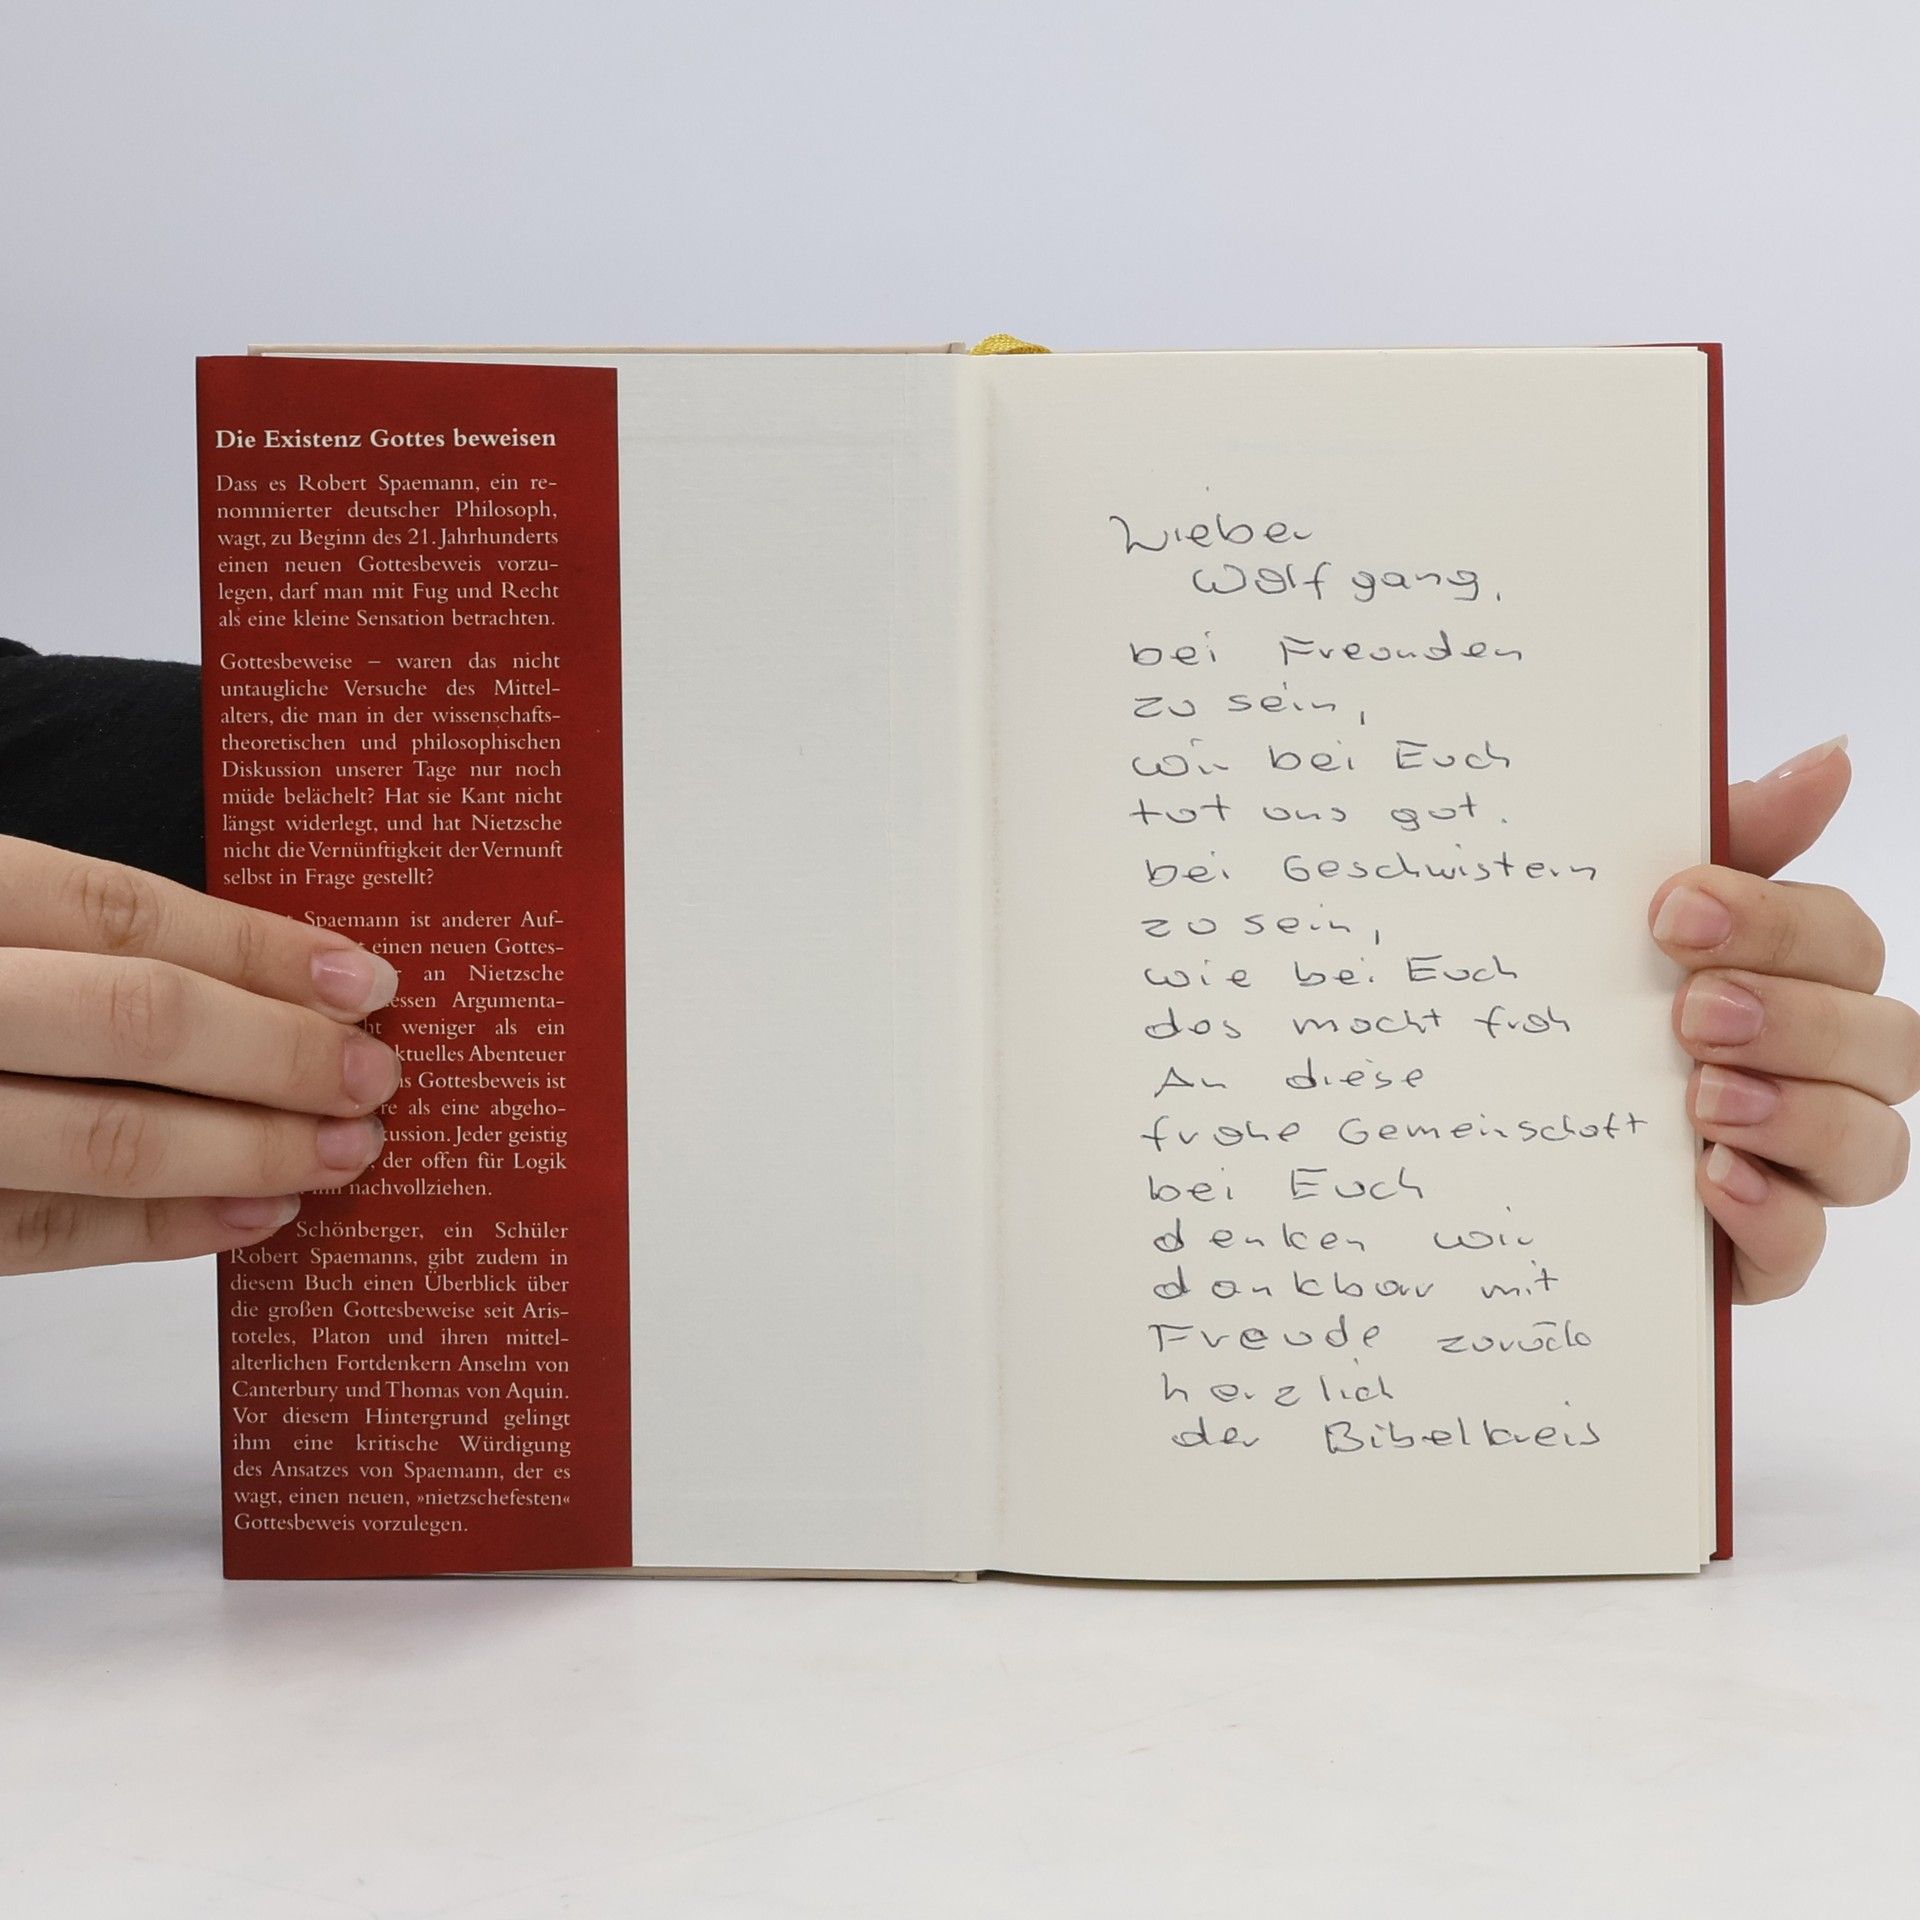 Die Existenz Gottes beweisen
Dass es Robert Spaemann, ein re-
nommierter deutscher Philosoph,
wagt, zu Beginn des 21. Jahrhunderts
einen neuen Gottesbeweis vorzu-
legen, darf man mit Fug und Recht
als eine kleine Sensation betrachten.
Gottesbeweise – waren das nicht
untaugliche Versuche des Mittel-
alters, die man in der wissenschafts-
theoretischen und philosophischen
Diskussion unserer Tage nur noch
müde belächelt? Hat sie Kant nicht
längst widerlegt, und hat Nietzsche
nicht die Vernünftigkeit der Vernunft
selbst in Frage gestellt?
Spaemann ist anderer Auf-
einen neuen Gottes-
an Nietzsche
Argumenta-
weniger als ein
Abenteuer
Gottesbeweis ist
als eine abgeho-
Jeder geistig
der offen für Logik
nachvollziehen.
Schönberger, ein Schüler
Robert Spaemanns, gibt zudem in
diesem Buch einen Überblick über
die großen Gottesbeweise seit Aris-
toteles, Platon und ihren mittel-
alterlichen Fortdenkern Anselm von
Canterbury und Thomas von Aquin.
Vor diesem Hintergrund gelingt
ihm eine kritische Würdigung
des Ansatzes von Spaemann, der es
wagt, einen neuen, »nietzschefesten«
Gottesbeweis vorzulegen.
Lieber
Wolfgang,
bei Freunden
zu sein,
wie bei Euch
tut uns gut.
bei Geschwistern
zu sein,
wie bei Euch
das macht froh
An diese
frohe Gemeinschaft
bei Euch
denken wir
dankbar mit
Freude zurück
herzlich
der Bibelkreis